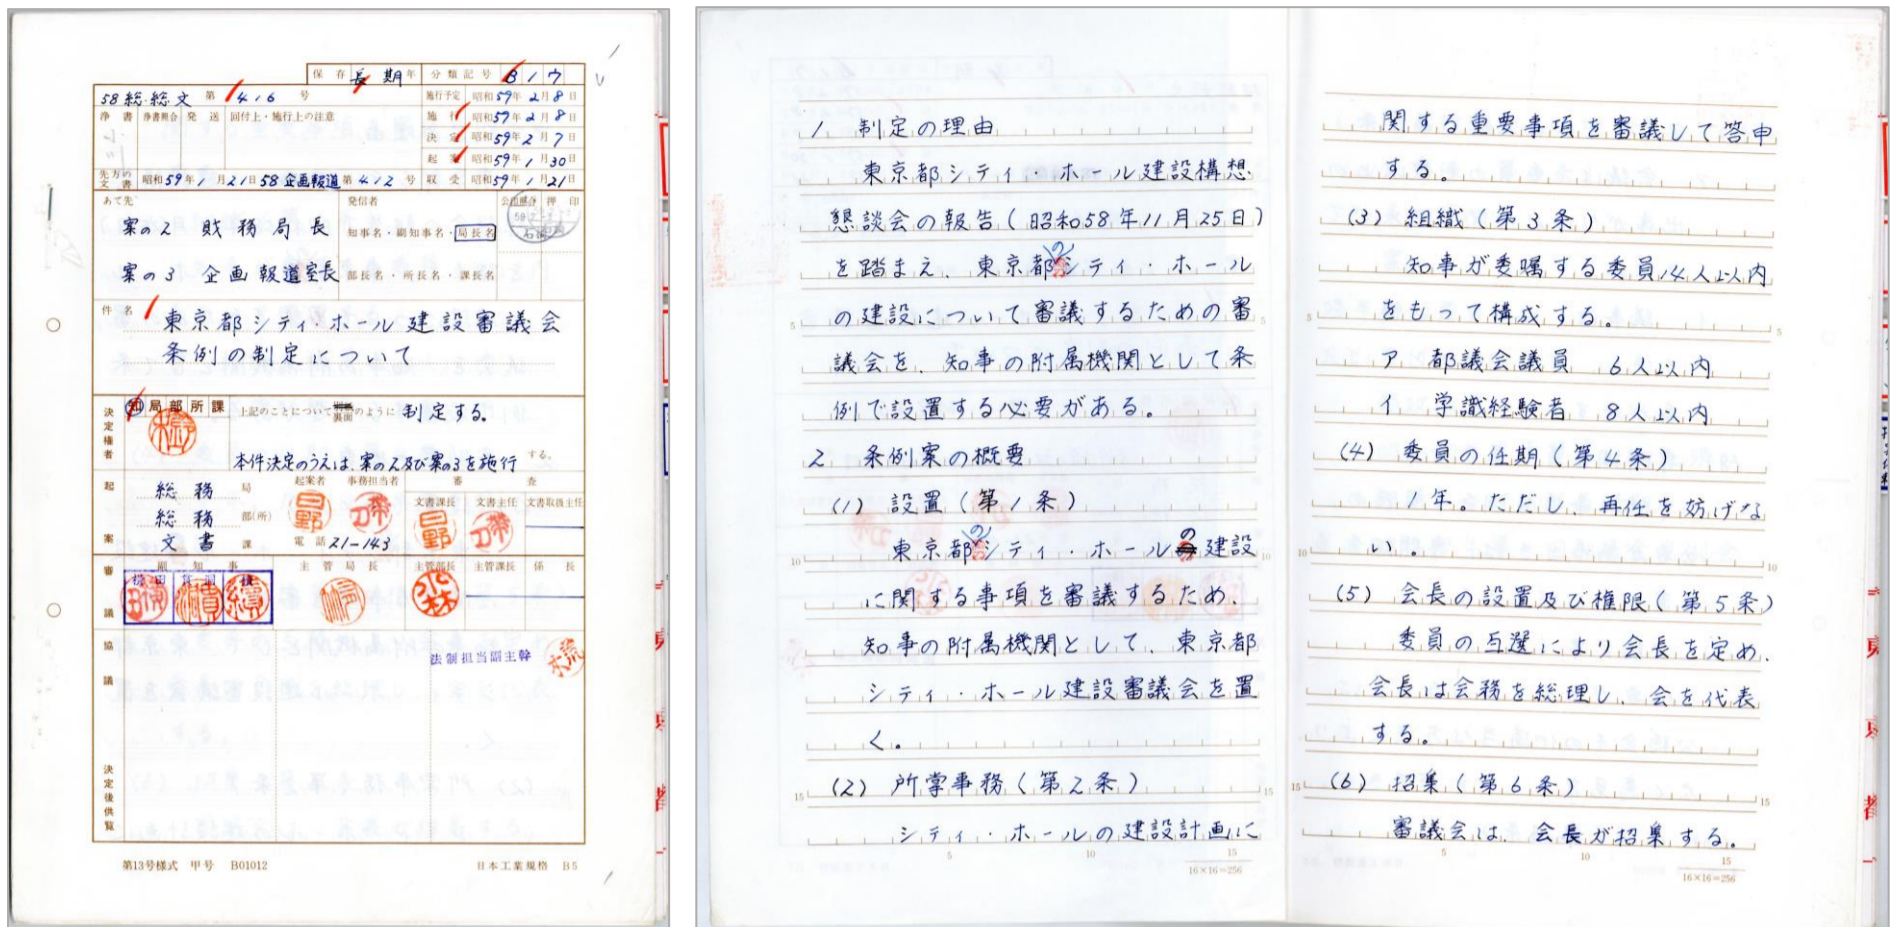 保存 長期 年 分類記号 B17
58総総文 第 416 号
施行予定 昭和59年2月8日
浄書 浄書照合 発送 回付上・施行上の注意
施行 昭和59年2月8日
決定 昭和59年2月7日
起案 昭和59年1月30日
先方の文書 昭和59年1月21日 58企画報道 第 412 号 収受 昭和59年1月21日
あて先 発信者 公印照合 押印
案の2 財務局長
知事名・副知事名・局長名
案の3 企画報道室長
部長名・所長名・課長名
件名
東京都シティ・ホール建設審議会
条例の制定について
決定権者
知局部所課
上記のことについて裏面のように 制定する。
本件決定のうえは、案の2及び案の3を施行 する。
起案
総務 局
総務 部(所)
文書 課
起案者 事務担当者
電話 21-143
審査
文書課長 文書主任 文書取扱主任
審議
副知事 主管局長 主管部長 主管課長 係長
協議
法制担当副主幹
決定後供覧
第13号様式 甲号 B01012 日本工業規格 B5
1 制定の理由
東京都シティ・ホール建設構想
懇談会の報告(昭和58年11月25日)
を踏まえ、東京都のシティ・ホール
の建設について審議するための審
議会を、知事の附属機関として条
例で設置する必要がある。
2 条例案の概要
(1) 設置(第1条)
東京都のシティ・ホールの建設
に関する事項を審議するため、
知事の附属機関として、東京都
シティ・ホール建設審議会を置
く。
(2) 所掌事務(第2条)
シティ・ホールの建設計画に
5 10 15
16×16=256
関する重要事項を審議して答申
する。
(3) 組織(第3条)
知事が委嘱する委員14人以内
をもって構成する。
ア 都議会議員 6人以内
イ 学識経験者 8人以内
(4) 委員の任期(第4条)
1年。ただし、再任を妨げな
い。
(5) 会長の設置及び権限(第5条)
委員の互選により会長を定め、
会長は会務を総理し、会を代表
する。
(6) 招集(第6条)
審議会は、会長が招集する。
5 10 15
16×16=256